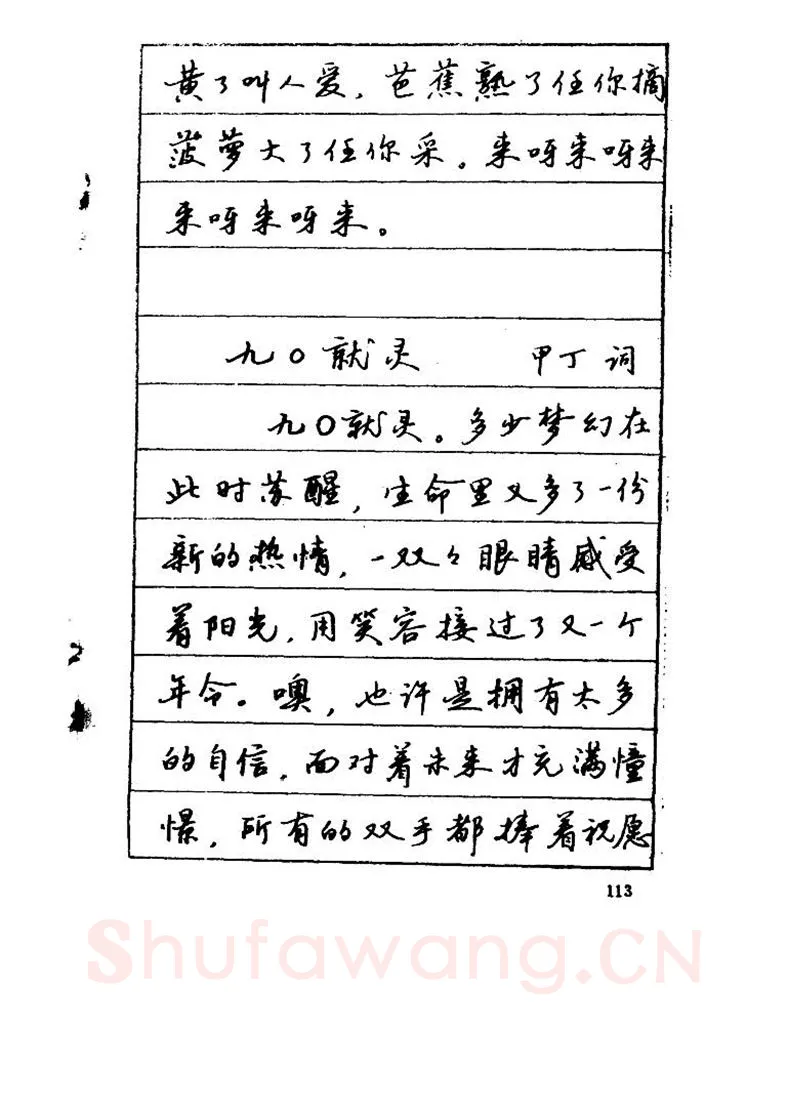 黄了叫人爱，芭蕉熟了任你摘
菠萝大了任你采。来呀来呀来
来呀来呀来。
九〇就灵 甲丁 词
九〇就灵。多少梦幻在
此时苏醒，生命里又多了一份
新的热情，一双々眼睛感受
着阳光，用笑容接过了又一个
年令。噢，也许是拥有太多
的自信，面对着未来才充满憧
憬，所有的双手都捧着祝愿
113
Shufawang.CN